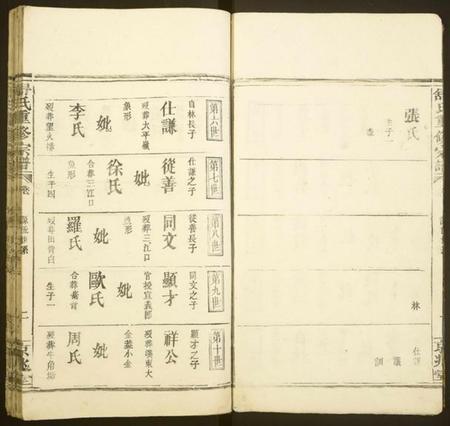 張氏
生子二
林
仕謙
議
訓
舒氏重修宗譜
京兆堂
第六世
自林長子
仕謙
歿葬大平磯
象形
妣
李氏
歿葬望火樓
第七世
仕謙之子
從善
歿葬三江口
妣
徐氏
合葬三江口
魚形
生子四
第八世
從善長子
同文
歿葬三江口
魚形
妣
羅氏
第九世
同文之子
顯才
官授宣義郎
妣
歐氏
合葬
生子一
第十世
顯才之子
祥公
歿葬溪東大
金盞小金
妣
周氏
歿葬牛角
舒氏重修宗譜
京兆堂